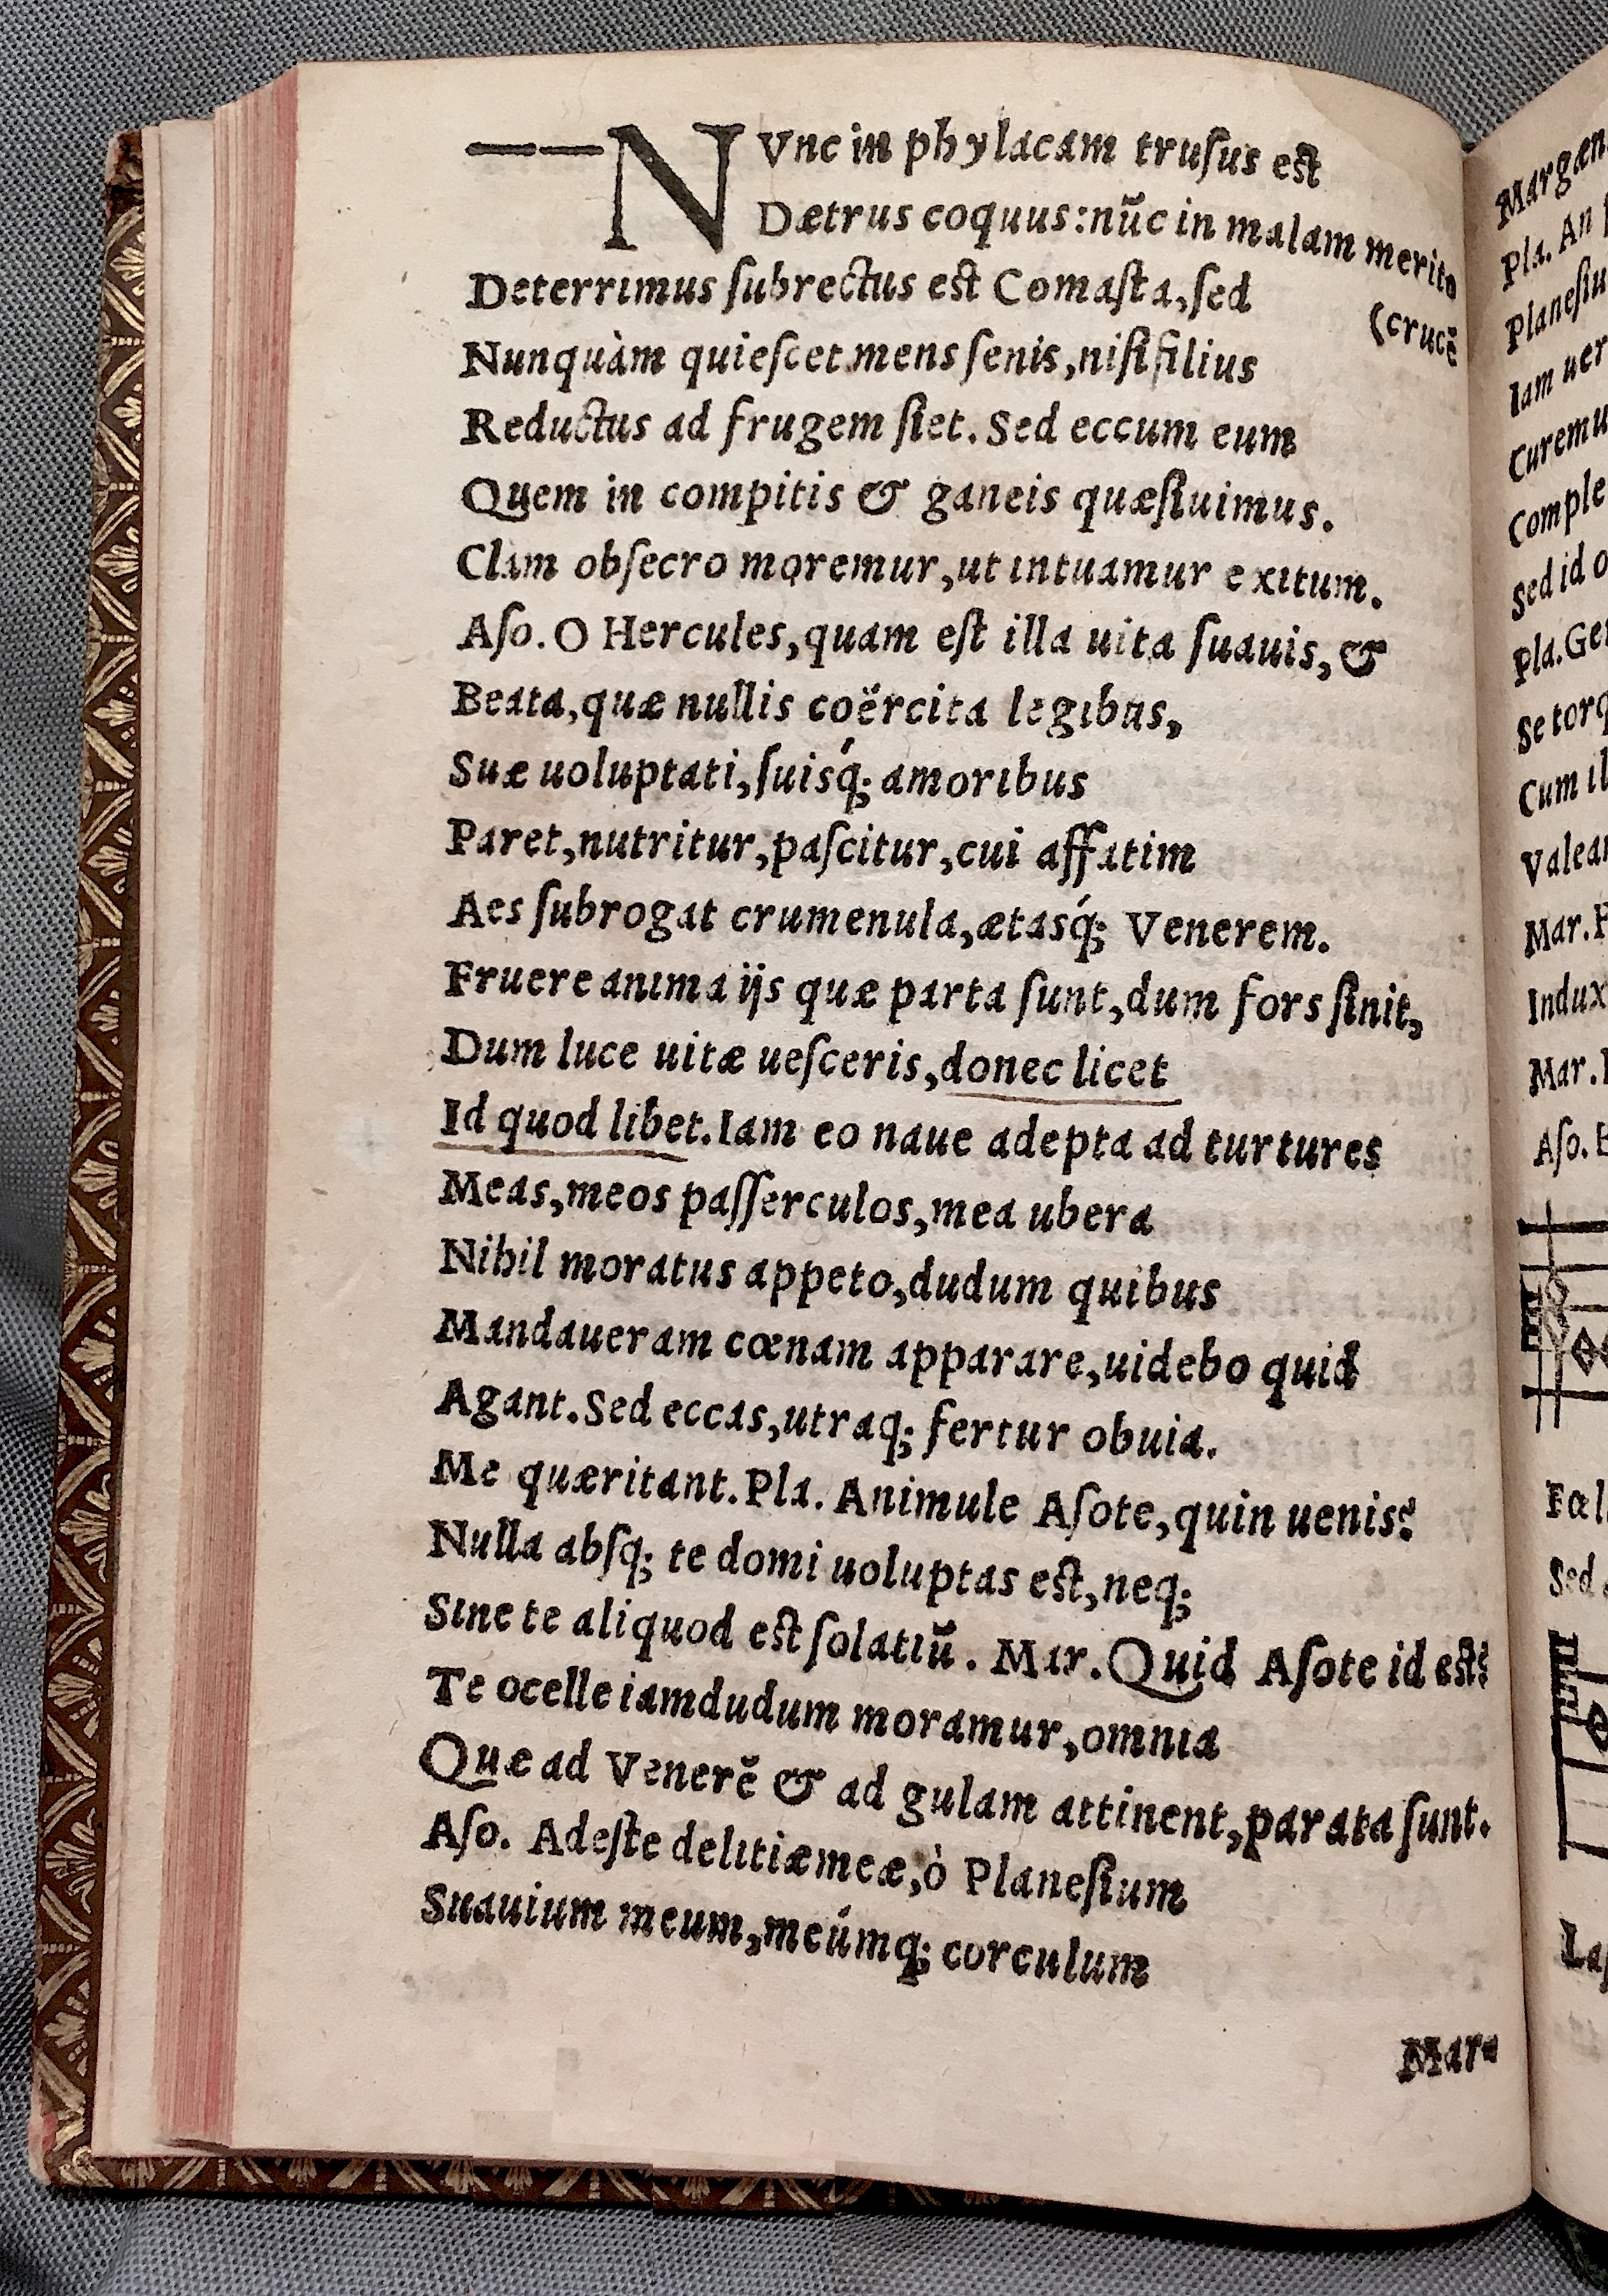 ——NVnc in phylacam trusus est
Dætrus coquus: nūc in malam merito
(crucē
Deterrimus subrectus est Comasta, sed
Nunquàm quiescet mens senis, nisi filius
Reductus ad frugem siet. Sed eccum eum
Quem in compitis & ganeis quæsiuimus.
Clam obsecro moremur, ut intuamur exitum.
Aso. O Hercules, quam est illa uita suauis, &
Beata, quæ nullis coërcita legibus,
Suæ uoluptati, suisq́; amoribus
Paret, nutritur, pascitur, cui affatim
Aes subrogat crumenula, ætasq́; Venerem.
Fruere anima ijs quæ parta sunt, dum fors sinit,
Dum luce uitæ uesceris, donec licet
Id quod libet. Iam eo naue adepta ad turtures
Meas, meos passerculos, mea ubera
Nihil moratus appeto, dudum quibus
Mandaueram cœnam apparare, uidebo quid
Agant. Sed eccas, utraq; fertur obuia.
Me quæritant. Pla. Animule Asote, quin uenis?
Nulla absq; te domi uoluptas est, neq;
Sine te aliquod est solatiū. Mar. Quid Asote id est?
Te ocelle iamdudum moramur, omnia
Quæ ad Venerē & ad gulam attinent, parata sunt.
Aso. Adeste delitiæ meæ, ò Planesium
Suauium meum, meúmq; corculum
Mar.
Margæn
Pla. An
Planesiu
Iam uer
Curemu
Comple
Sed id o
Pla. Ger
Se torq
Cum il
Valear
Mar.
Indux
Mar.
Aso.
Fœl
Sed